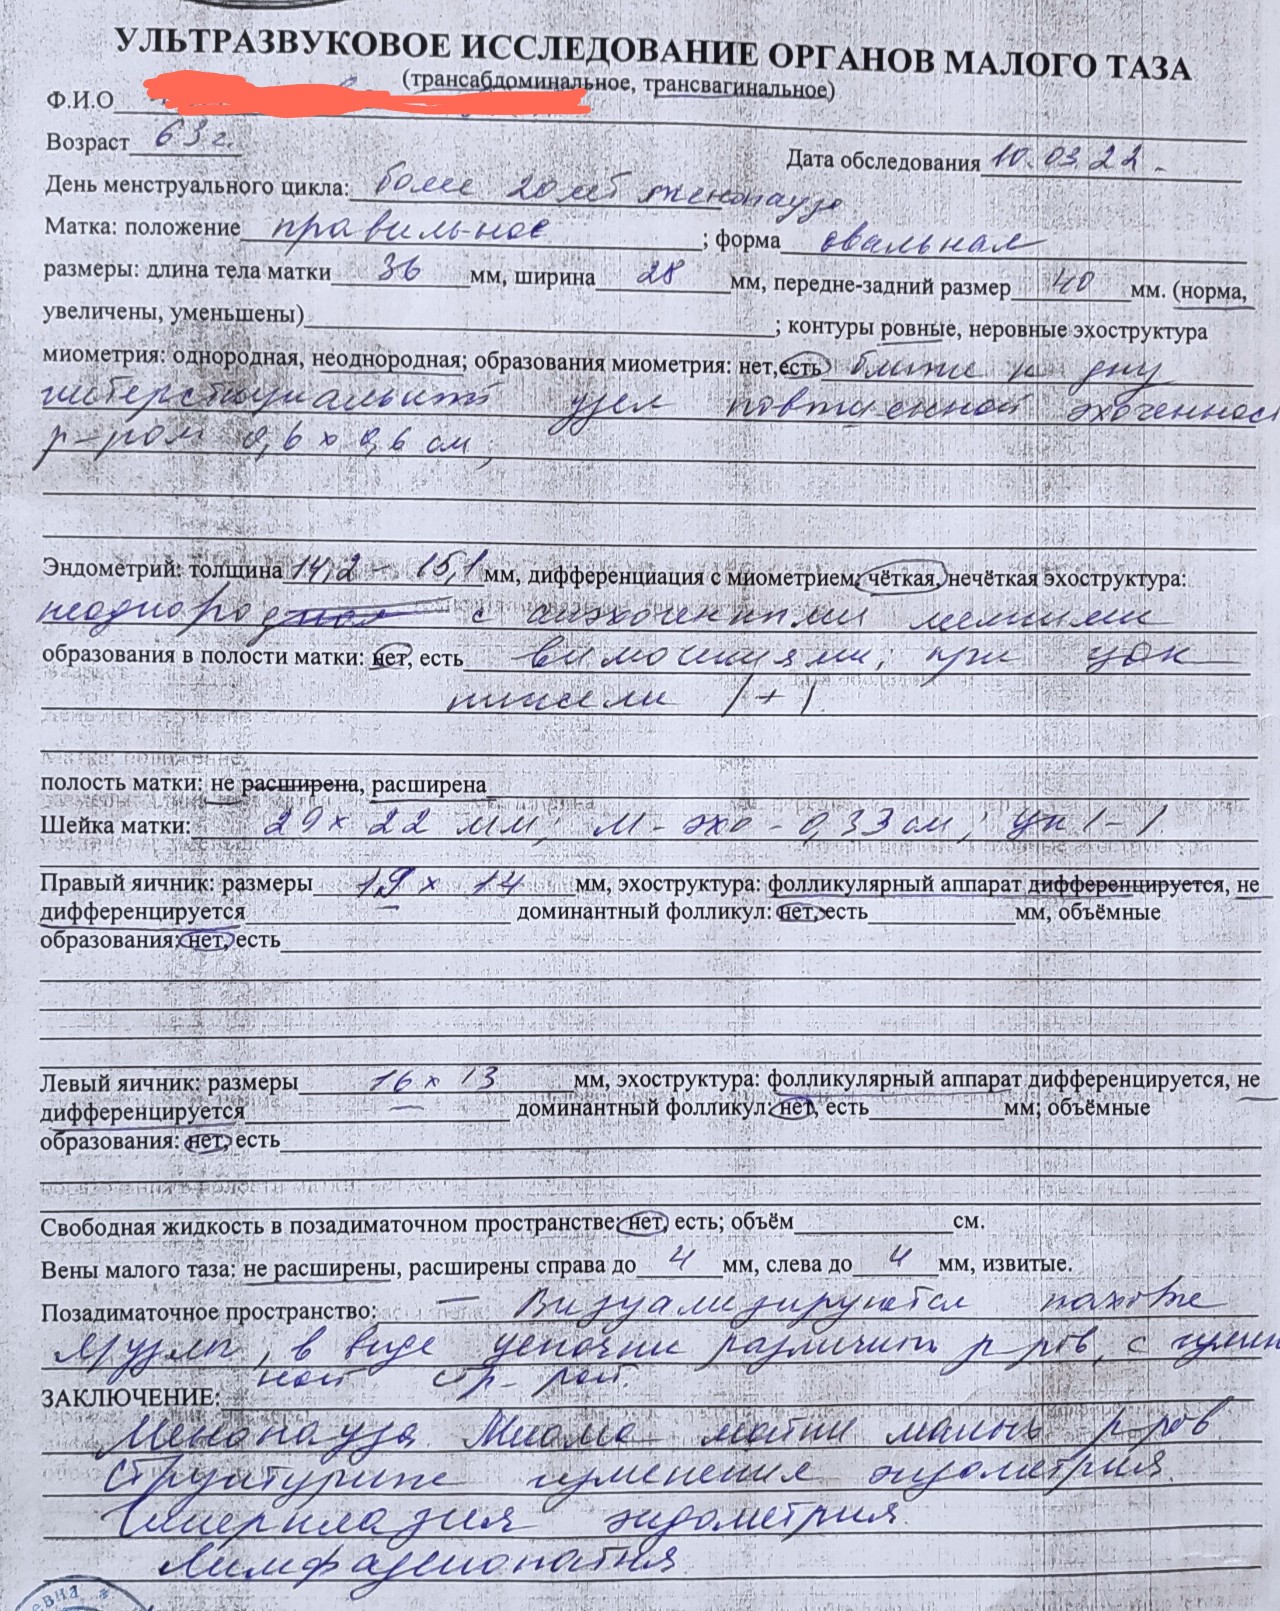 УЛЬТРАЗВУКОВОЕ ИССЛЕДОВАНИЕ ОРГАНОВ МАЛОГО ТАЗА
(трансабдоминальное, трансвагинальное)
Ф.И.О
Возраст 63 г.
Дата обследования 10.03.22
День менструального цикла: более 20 лет менопауза
Матка: положение правильное ; форма овальная
размеры: длина тела матки 36 мм, ширина 28 мм, передне-задний размер 40 мм. (норма,
увеличены, уменьшены) ; контуры ровные, неровные эхоструктура
миометрия: однородная, неоднородная; образования миометрия: нет, есть ближе к дну
интерстициальный узел повышенной эхогенност
р-ром 0,6 х 0,6 см,
Эндометрий: толщина 14,2 - 15,1 мм, дифференциация с миометрием: чёткая, нечёткая эхоструктура:
неоднород с анэхогенными мелкими
образования в полости матки: нет, есть включениями; при цдк
/+/
полость матки: не расширена, расширена
Шейка матки: 29 х 22 мм; М-эхо - 0,33 см;
Правый яичник: размеры 19 х 14 мм, эхоструктура: фолликулярный аппарат дифференцируется, не
дифференцируется доминантный фолликул: нет, есть мм, объёмные
образования: нет, есть
Левый яичник: размеры 16 х 13 мм, эхоструктура: фолликулярный аппарат дифференцируется, не
дифференцируется доминантный фолликул: нет, есть мм; объёмные
образования: нет, есть
Свободная жидкость в позадиматочном пространстве: нет, есть; объём см.
Вены малого таза: не расширены, расширены справа до 4 мм, слева до 4 мм, извитые.
Позадиматочное пространство: — Визуализируются паховые
л/узлы, в виде цепочки различных р-ров, с
ной стр-рой.
ЗАКЛЮЧЕНИЕ:
Менопауза. Миома матки малых р-ров.
Структурные изменения эндометрия.
Гиперплазия эндометрия.
Лимфаденопатия
евна *